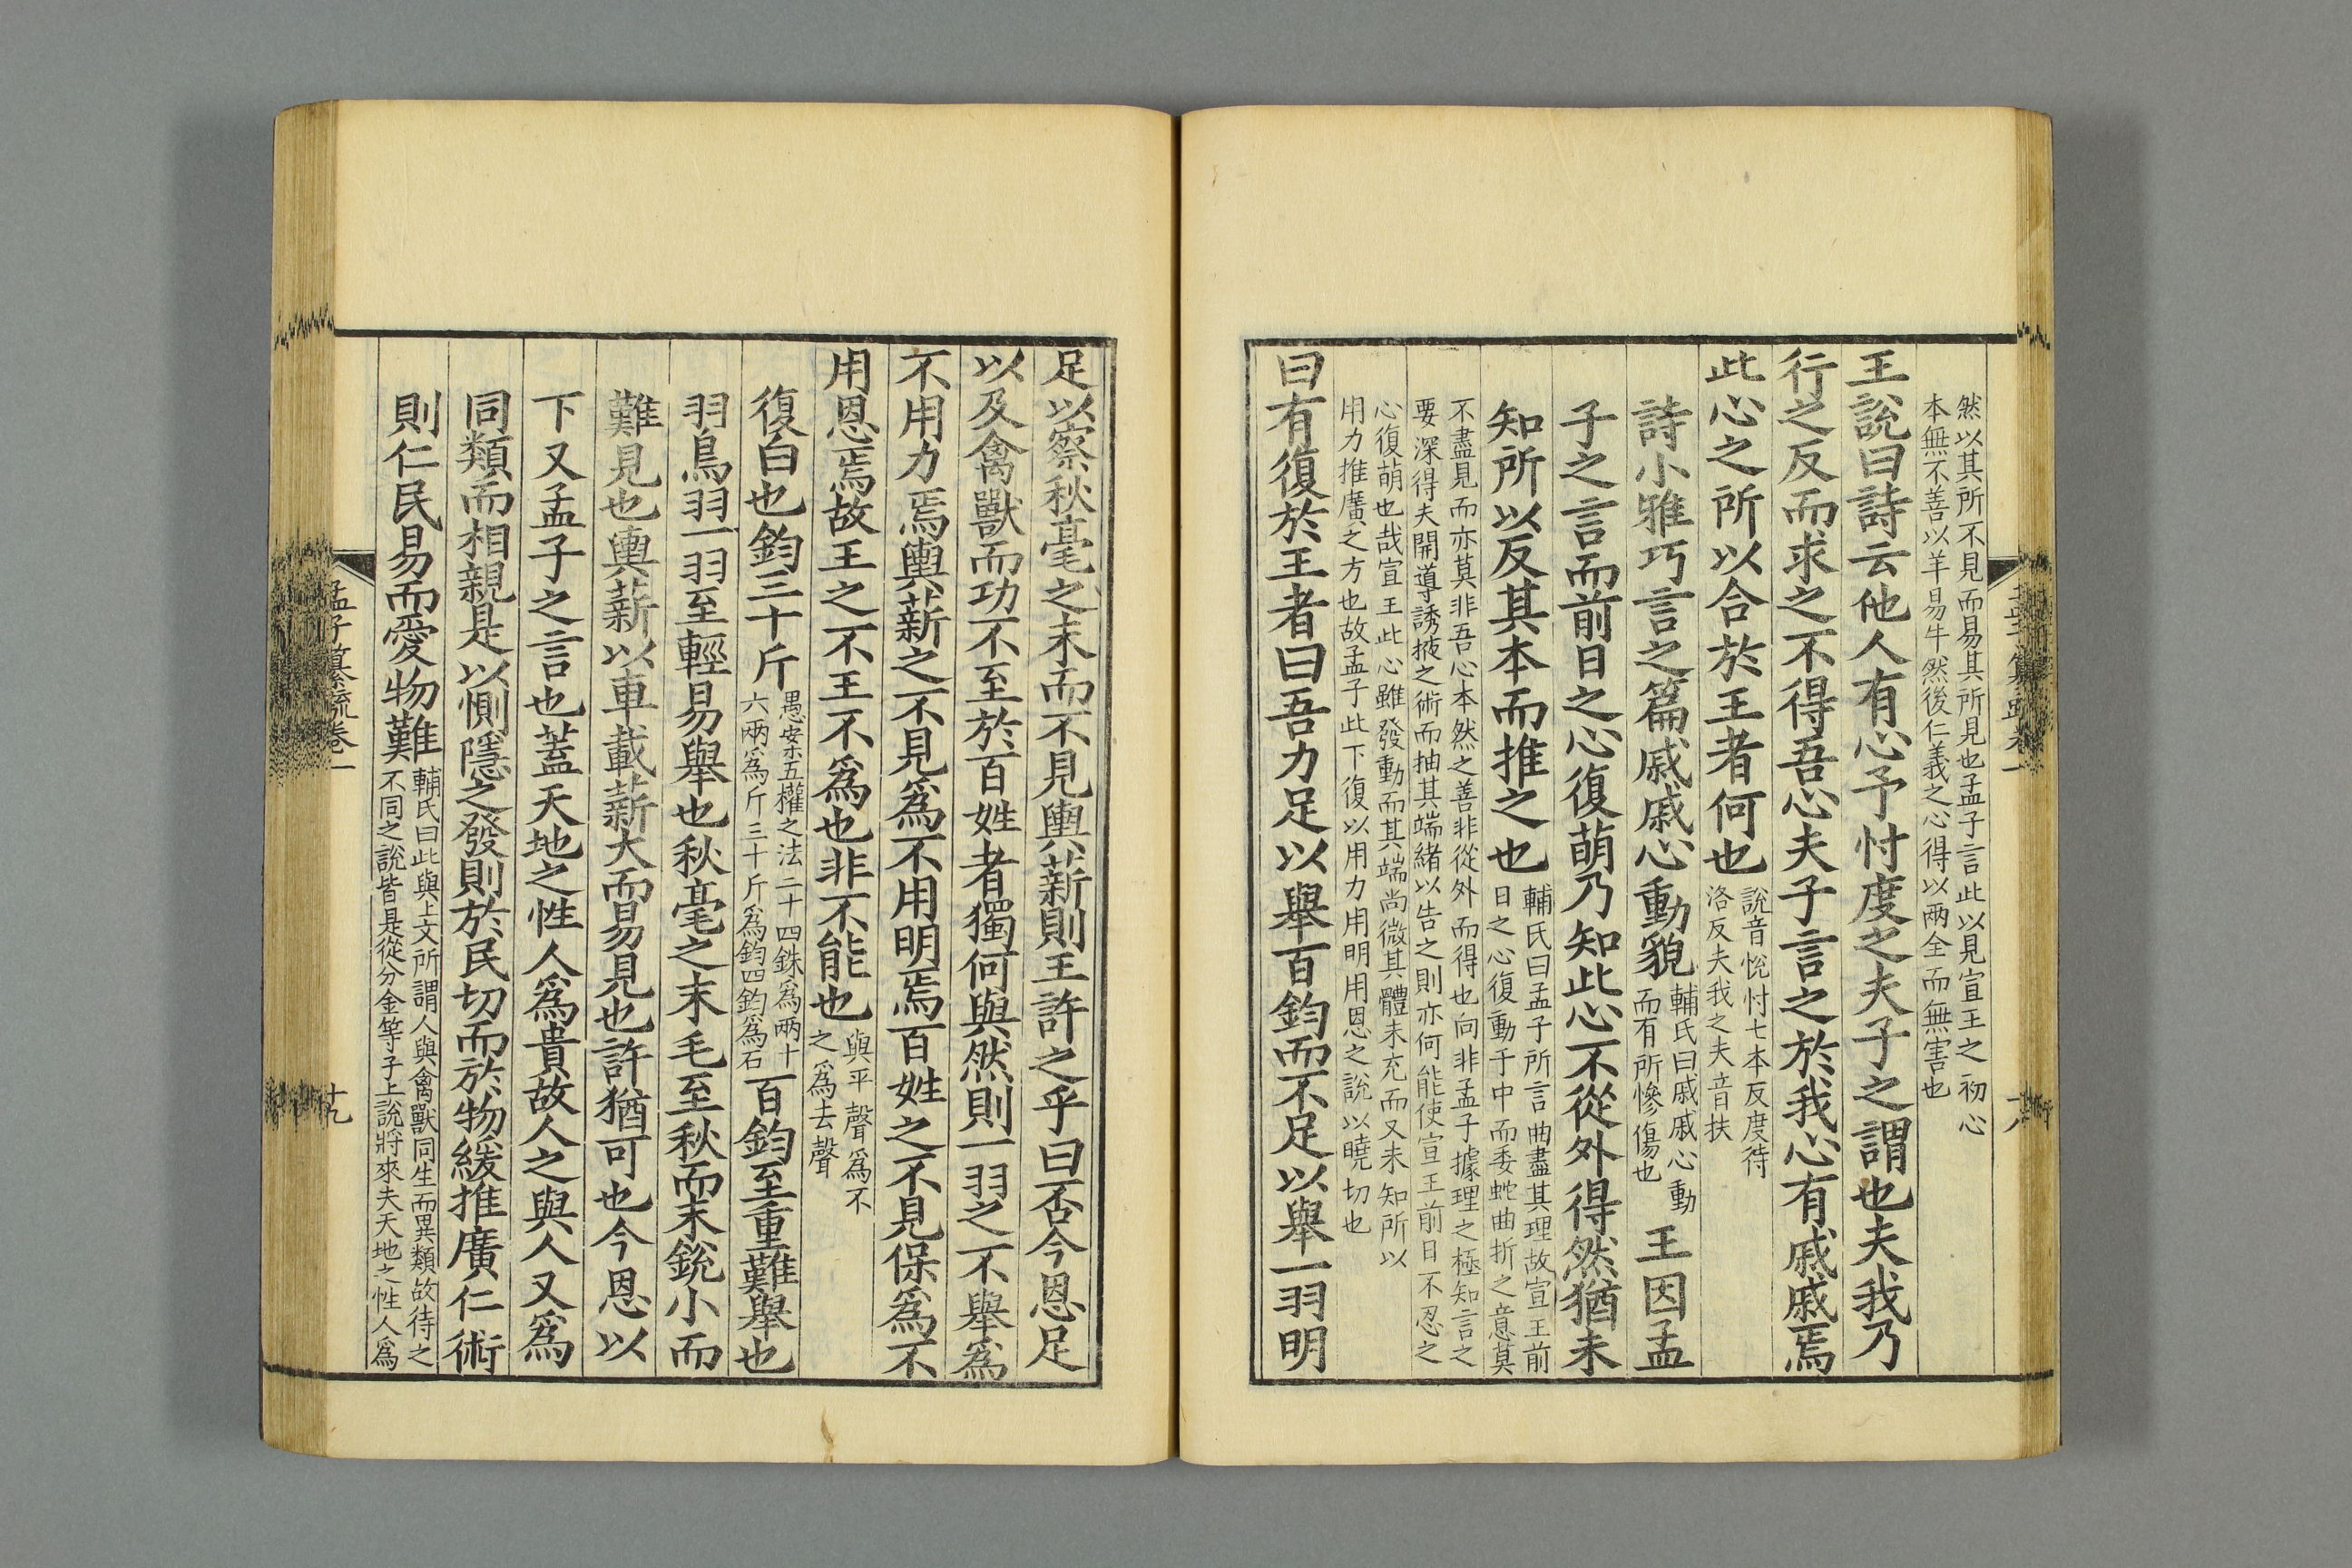 然以其所不見而易其所見也孟子言此以見宣王之初心
本無不善以羊易牛然後仁義之心得以兩全而無害也
王說曰詩云他人有心予忖度之夫子之謂也夫我乃
行之反而求之不得吾心夫子言之於我心有戚戚焉
此心之所以合於王者何也
說音悅忖七本反度待
洛反夫我之夫音扶
詩小雅巧言之篇戚戚心動貌
輔氏曰戚戚心動
而有所慘傷也
王因孟
子之言而前日之心復萌乃知此心不從外得然猶未
知所以反其本而推之也
輔氏曰孟子所言曲盡其理故宣王前
日之心復動于中而委蛇曲折之意莫
不盡見而亦莫非吾心本然之善非從外而得也向非孟子據理之極知言之
要深得夫開導誘掖之術而抽其端緒以告之則亦何能使宣王前日不忍之
心復萌也哉宣王此心雖發動而其端尚微其體未充而又未知所以
用力推廣之方也故孟子此下復以用力用明用恩之說以曉切也
曰有復於王者曰吾力足以舉百鈞而不足以舉一羽明
足以察秋毫之末而不見輿薪則王許之乎曰否今恩足
以及禽獸而功不至於百姓者獨何與然則一羽之不舉爲
不用力焉輿薪之不見爲不用明焉百姓之不見保爲不
用恩焉故王之不王不爲也非不能也
與平聲爲不
之爲去聲
復白也鈞三十斤
愚案五權之法二十四銖爲兩十
六兩爲斤三十斤爲鈞四鈞爲石
百鈞至重難舉也
羽鳥羽一羽至輕易舉也秋毫之末毛至秋而末銳小而
難見也輿薪以車載薪大而易見也許猶可也今恩以
下又孟子之言也蓋天地之性人爲貴故人之與人又爲
同類而相親是以惻隱之發則於民切而於物緩推廣仁術
則仁民易而愛物難
輔氏曰此與上文所謂人與禽獸同生而異類故待之
不同之說皆是從分金等子上說將來夫天地之性人爲
孟子纂疏卷一
十九